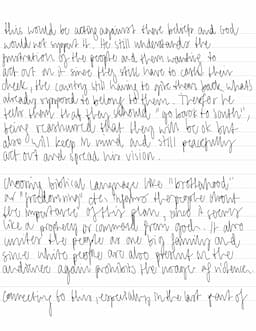 this would be acting against those beliefs and God
would not support it. He still understands the
frustration of the people and them wanting to
act out on it since they still have to cash their
check, the country still having to give them back what's
already supposed to belong to them. Therefor he
tells them that they should "go back to south",
being reassured that they will be ok but
also will keep in mind and still peacefully
act out and spread his vision.
Choosing biblical language like "brotherhood"
or "freedom ring" etc. the people about
the importance of this plan, since it seems
like a prophecy or command from god. It also
unites the people as one big family and
since white people are also present in the
audience again prohibits the usage of violence.
Connecting to this, especially in the last part of